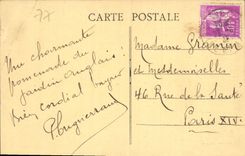 77
CARTE POSTALE
Une charmante
promenade du
jardin anglais:
bien cordial
Madame
et Mesdemoiselles
46 Rue de la Santé
Paris XIV.